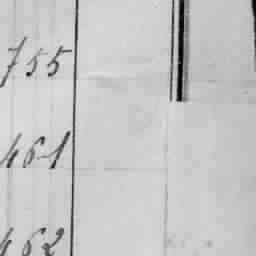 755
461
462